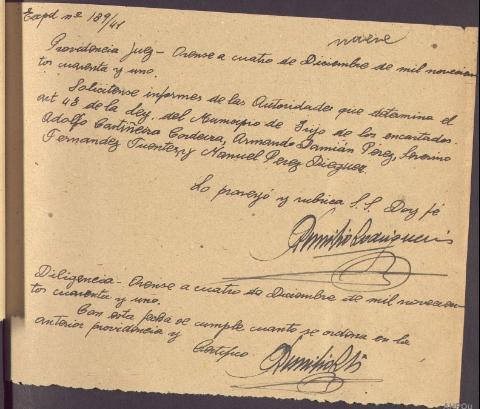 Expd. nº 189/41
nueve
Providencia Juez - Orense a cuatro de Diciembre de mil novecien-
tos cuarenta y uno.
Solicitense informes de las Autoridades que determina el
art 48 de la Ley, del Municipio de Irijo de los encartados
Adolfo Cortiñeira Cordeira, Armando Damián Pérez, Severino
Fernandez Fuentes, y Manuel Perez Dieguez.
Lo proveyó y rubrica S.S. Doy fé
Diligencia - Orense a cuatro de Diciembre de mil novecien-
tos cuarenta y uno.
Con esta fecha se cumple cuanto se ordena en la
anterior providencia y Certifico